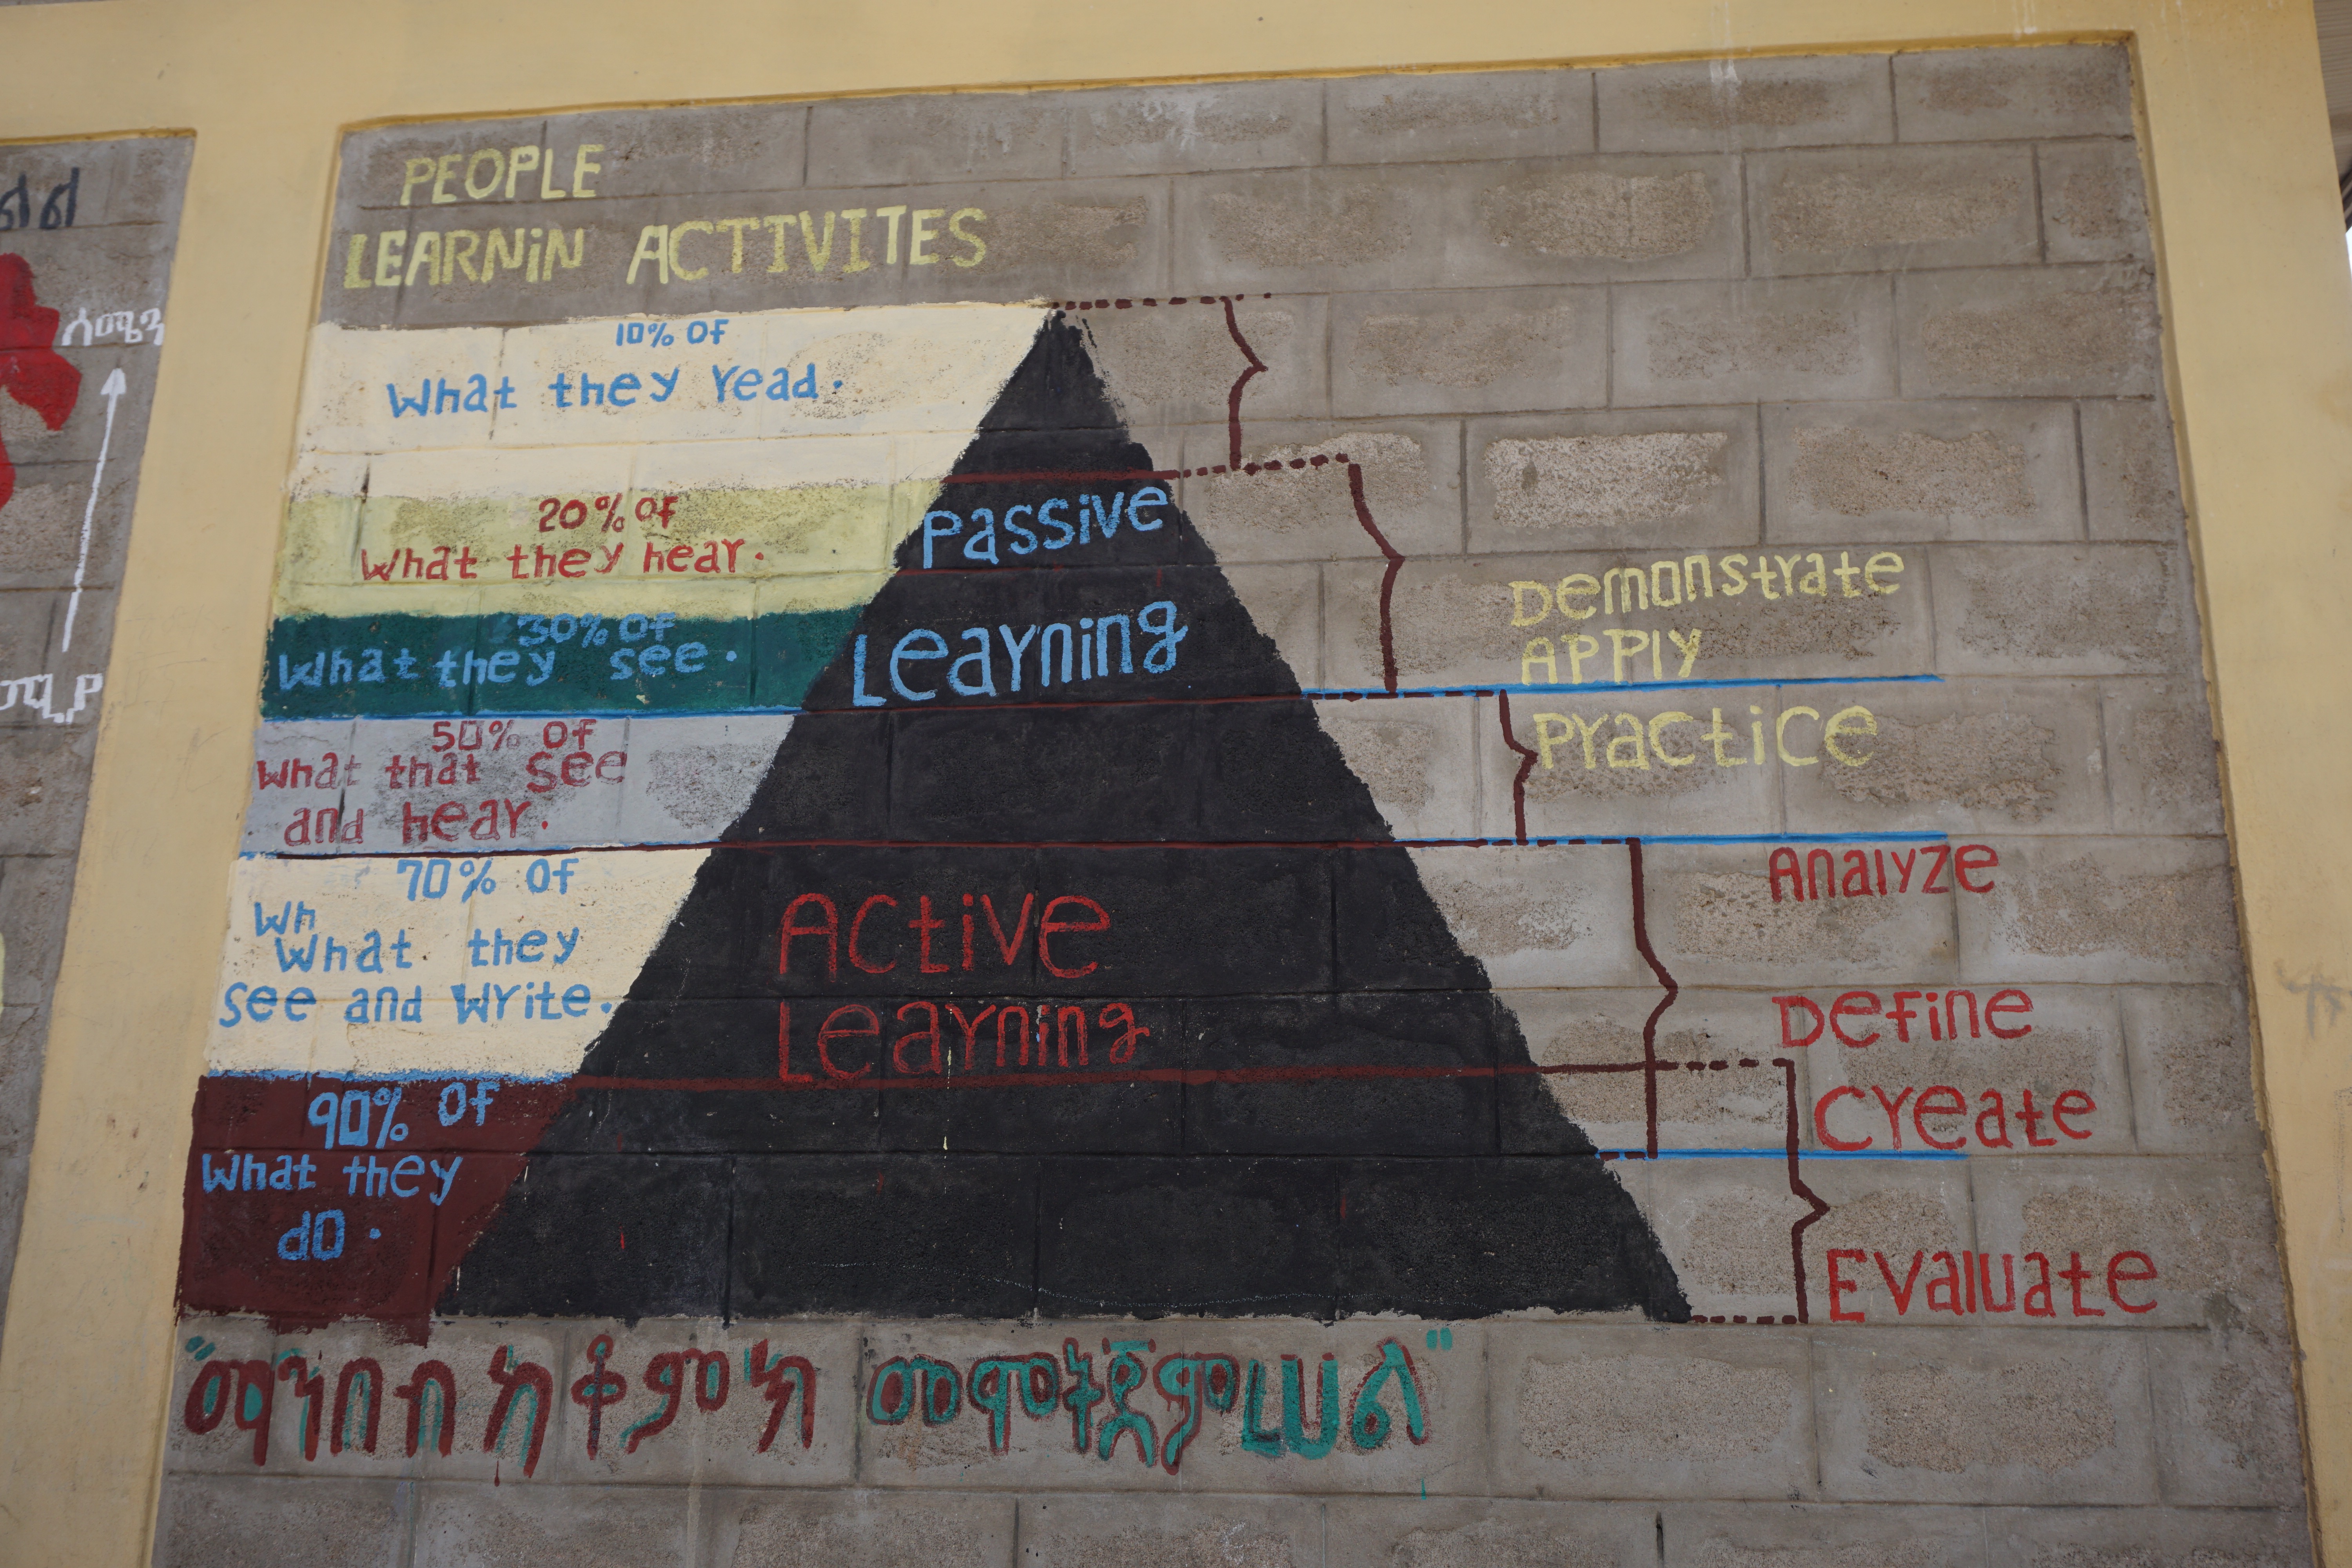 PEOPLE
LEARNiN ACTIVITES
10% OF
What they read.
20% of
What they hear.
30% OF
What they see.
50% Of
What that see
and hear.
70% Of
Wh
What they
see and write.
90% Of
What they
do.
Passive
Learning
Active
Learning
Demonstrate
APPlY
Practice
Analyze
Define
Create
Evaluate
ሰሜን